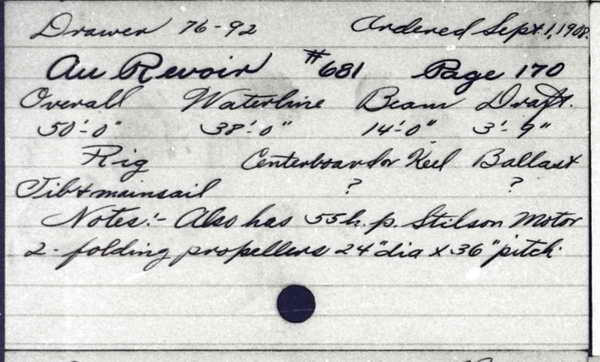 Drawer 76-92 Ordered Sept. 1, 1908.
Au Revoir #681 Page 170
Overall Waterline Beam Draft.
50'-0" 38'-0" 14'-0" 3'-9"
Rig Centerboard or Keel Ballast
Jib & mainsail ? ?
Notes:- Also has 55 h.p. Stilson Motor
2-folding propellers 24" dia x 36" pitch.